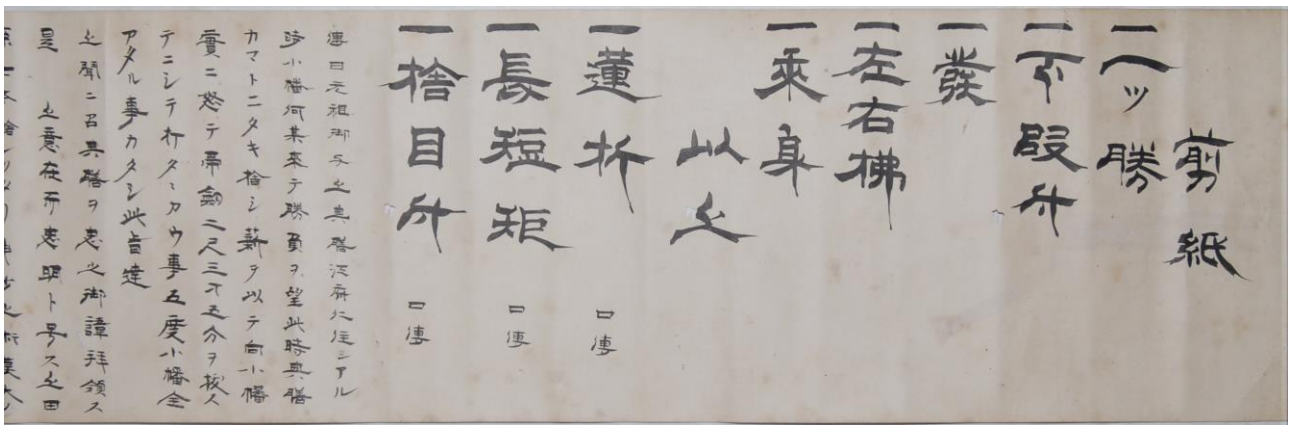 剪紙
一 ッ勝
一下段付
一發
一左右拂
一乘身
以上
一蓮折 口傳
一長短矩 口傳
一捨目付 口傳
傳曰元祖御 上典膳江府に住シアル
時小幡何某來テ勝負ヲ望此時典膳
カマトニタキ捨シ薪ヲ以テ向小幡
實ニ怒テ帯劔二尺三寸五分ヲ拔
テニシテ打タヽカウ事五度小幡全
アタル事カタシ此旨達
上聞ニ召典膳ヲ忠 御諱拝領ス
是 上意在而忠明ト号ス